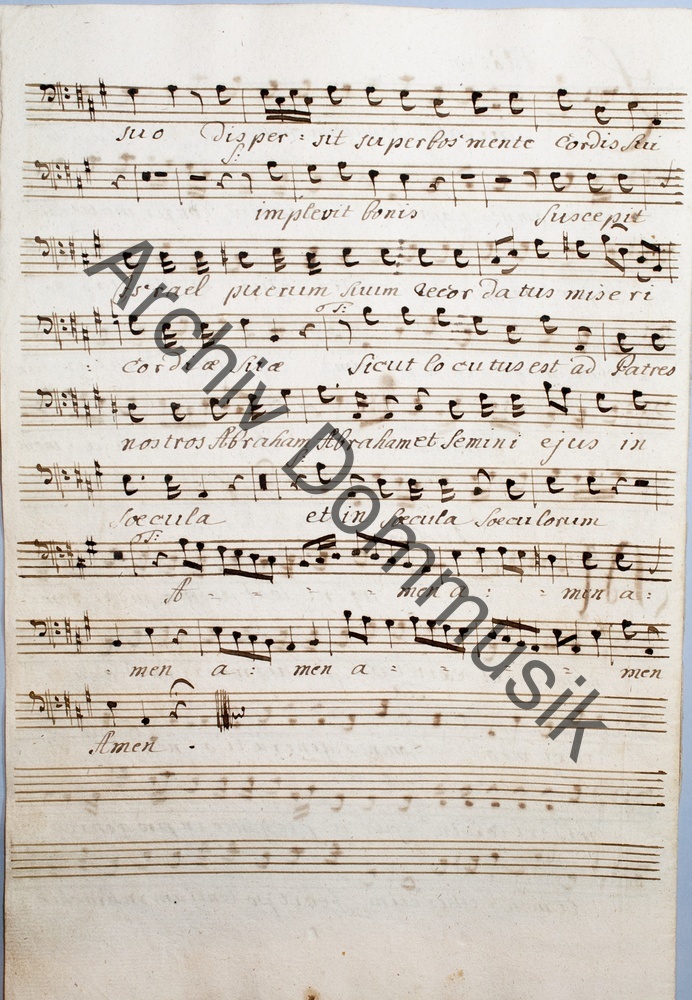 suo Dispersit superbos mente Cordis sui
S:
implevit bonis Suscepit
Israel puerum suum Recordatus miseri
Cordiæ suæ Sicut locutus est ad Patres
nostros Abraham Abraham et Semini ejus in
sæcula et in Sæcula Sæculorum
A - - men a : : men a :
: men a : men a : : : : men
Amen .
Archiv Dommusik